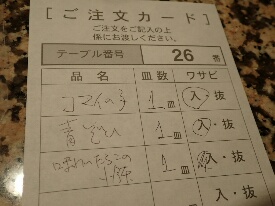 [ ご注文カード ]
ご注文をご記入の上
係にお渡しください。
テーブル番号 26 番
品名 皿数 ワサビ
1皿 入・抜
1皿 入・抜
1皿 入・抜
皿 入・抜